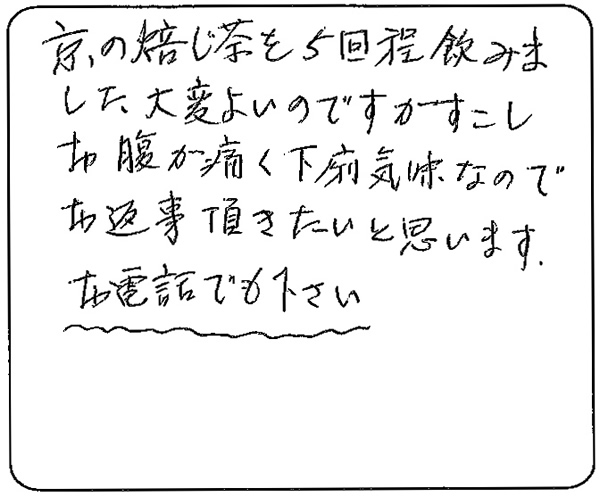 京の焙じ茶を5回程飲みま
した。大変よいのですがすこし
お腹が痛く下痢気味なので
お返事頂きたいと思います。
お電話でも下さい